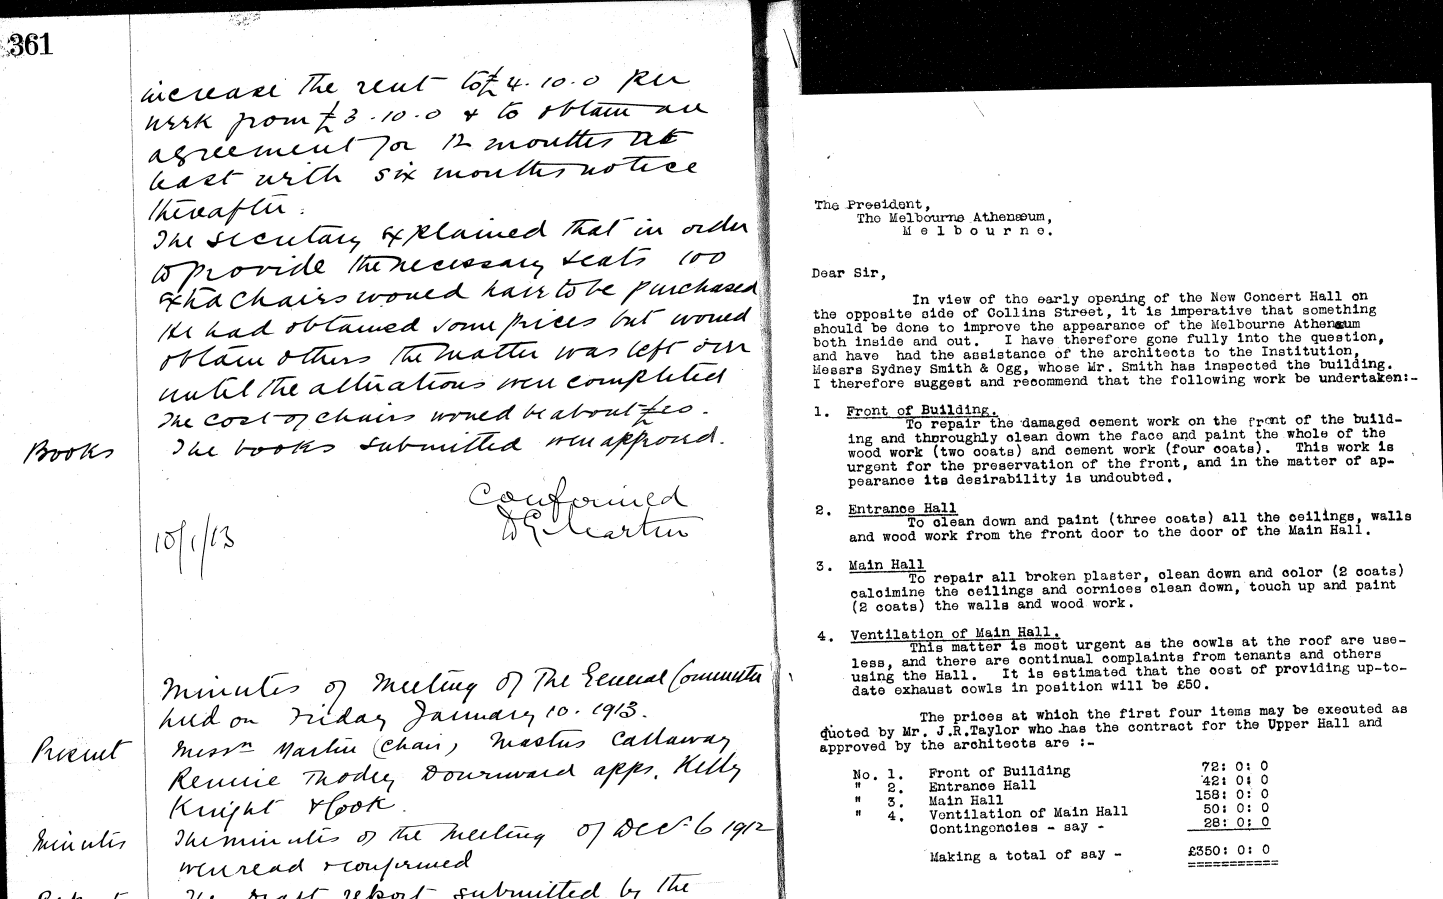 361
increase the rent to £4.10.0 per
week from £3.10.0 & to obtain an
agreement for 12 months at
least with six months notice
thereafter.
The secretary explained that in order
to provide the necessary seats 100
extra chairs would have to be purchased
He had obtained some prices but would
obtain others the matter was left over
until the alterations were completed
The cost of chairs would be about
Books
The books submitted were approved.
Confirmed
Martin
10/1/13
Minutes of Meeting of the General Committee
held on Friday January 10. 1913.
Present
Messrs Martin (Chair) Masters Callaway
Rennie Thodey Downward apps. Kelly
Knight & Cook.
Minutes
The minutes of the meeting of Dec 6 1912
were read & confirmed
The draft report submitted by the
The President,
The Melbourne Athenæum,
Melbourne.
Dear Sir,
In view of the early opening of the New Concert Hall on
the opposite side of Collins Street, it is imperative that something
should be done to improve the appearance of the Melbourne Athenæum
both inside and out. I have therefore gone fully into the question,
and have had the assistance of the architects to the Institution,
Messrs Sydney Smith & Ogg, whose Mr. Smith has inspected the building.
I therefore suggest and recommend that the following work be undertaken:-
1. Front of Building.
To repair the damaged cement work on the front of the build-
ing and thoroughly clean down the face and paint the whole of the
wood work (two coats) and cement work (four coats). This work is
urgent for the preservation of the front, and in the matter of ap-
pearance its desirability is undoubted.
2. Entrance Hall
To clean down and paint (three coats) all the ceilings, walls
and wood work from the front door to the door of the Main Hall.
3. Main Hall
To repair all broken plaster, clean down and color (2 coats)
calcimine the ceilings and cornices clean down, touch up and paint
(2 coats) the walls and wood work.
4. Ventilation of Main Hall.
This matter is most urgent as the cowls at the roof are use-
less, and there are continual complaints from tenants and others
using the Hall. It is estimated that the cost of providing up-to-
date exhaust cowls in position will be £50.
The prices at which the first four items may be executed as
quoted by Mr. J.R.Taylor who has the contract for the Upper Hall and
approved by the architects are :-
No. 1. Front of Building 72: 0: 0
" 2. Entrance Hall 42: 0: 0
" 3. Main Hall 158: 0: 0
" 4. Ventilation of Main Hall 50: 0: 0
Contingencies - say - 28: 0: 0
Making a total of say - £350: 0: 0